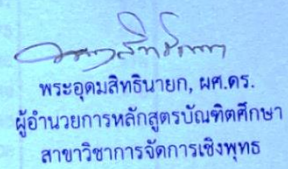 พระอุดมสิทธินายก, ผศ.ดร.
ผู้อำนวยการหลักสูตรบัณฑิตศึกษา
สาขาวิชาการจัดการเชิงพุทธ